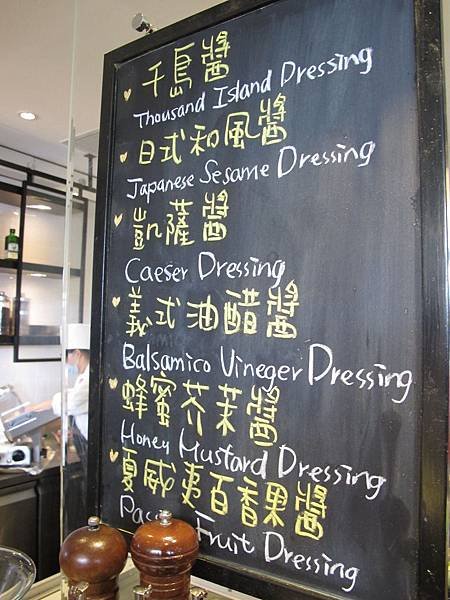 千島醬
Thousand Island Dressing
日式和風醬
Japanese Sesame Dressing
凱薩醬
Caeser Dressing
義式油醋醬
Balsamico Vineger Dressing
蜂蜜芥茉醬
Honey Mustard Dressing
夏威夷百香果醬
Fruit Dressing